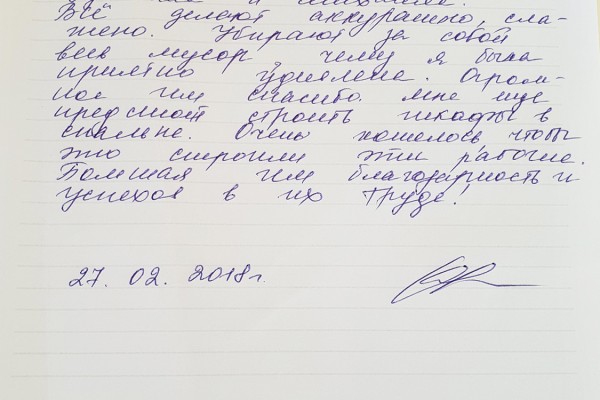 Всё делают аккуратно, сла-
жено. Убирают за собой
весь мусор, чему я была
приятно удивлена. Огром-
ное им спасибо. Мне еще
предстоит строить шкафы в
спальне. Очень хотелось, чтобы
это строили эти рабочие.
Большая им благодарность и
успехов в их труде!
27. 02. 2018г.